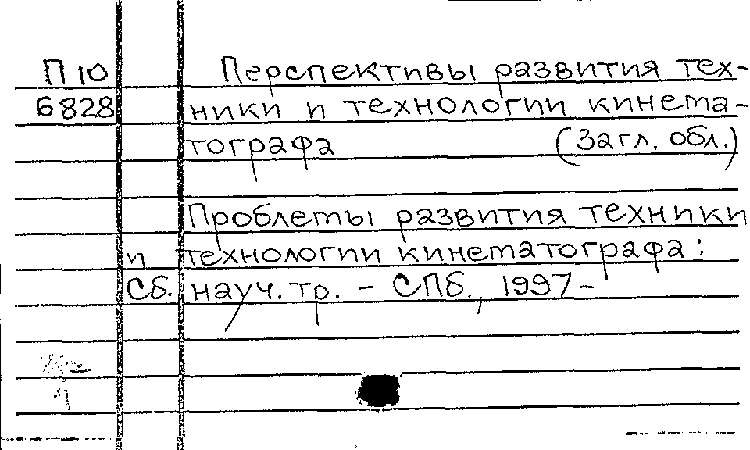 П 10 Перспективы развития тех-
6828 ники и технологии кинема-
тографа (Загл. обл.)
Проблемы развития техники
и технологии кинематографа:
Сб. науч. тр. – СПб., 1997–